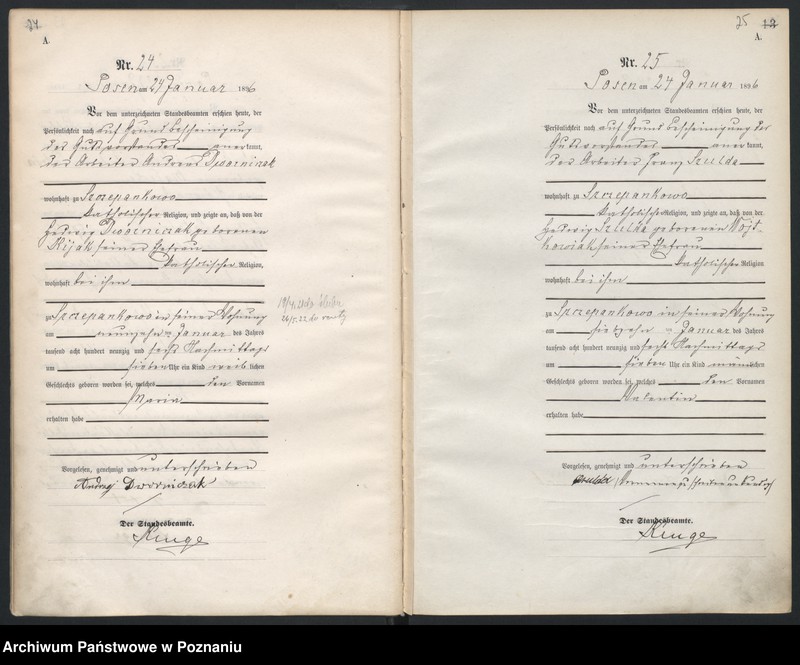 24
A.
Nr. 24
Posen am 24 Januar 1896
Vor dem unterzeichneten Standesbeamten erschien heute, der
Persönlichkeit nach auf Grund Bescheinigung
des Gutsvorstandes anerkannt,
der Arbeiter Andreas Dworniczak
wohnhaft zu Szczepankowo
katholischer Religion, und zeigte an, daß von der
Hedwig Dworniczak geborenen
Kijak seiner Ehefrau
katholischer Religion,
wohnhaft bei ihm
zu Szczepankowo in seiner Wohnung
am neunzehnten Januar des Jahres
tausend acht hundert neunzig und sechs Nachmittags
um sieben Uhr ein Kind weiblichen
Geschlechts geboren worden sei, welches den Vornamen
Maria
erhalten habe
Vorgelesen, genehmigt und unterschrieben
Andrzej Dworniczak
Der Standesbeamte.
Kruge
25
13
A.
Nr. 25
Posen am 24 Januar 1896
Vor dem unterzeichneten Standesbeamten erschien heute, der
Persönlichkeit nach auf Grund Bescheinigung des
Gutsvorstandes anerkannt,
der Arbeiter Franz Szulda
wohnhaft zu Szczepankowo
katholischer Religion, und zeigte an, daß von der
Hedwig Szulda geborenen Wojt-
kowiak seiner Ehefrau
katholischer Religion
wohnhaft bei ihm
zu Szczepankowo in seiner Wohnung
am siebzehnten Januar des Jahres
tausend acht hundert neunzig und sechs Nachmittags
um sieben Uhr ein Kind männlichen
Geschlechts geboren worden sei, welches den Vornamen
Valentin
erhalten habe
Vorgelesen, genehmigt und unterschrieben
Szulda
Der Standesbeamte.
Kruge
Archiwum Państwowe w Poznaniu